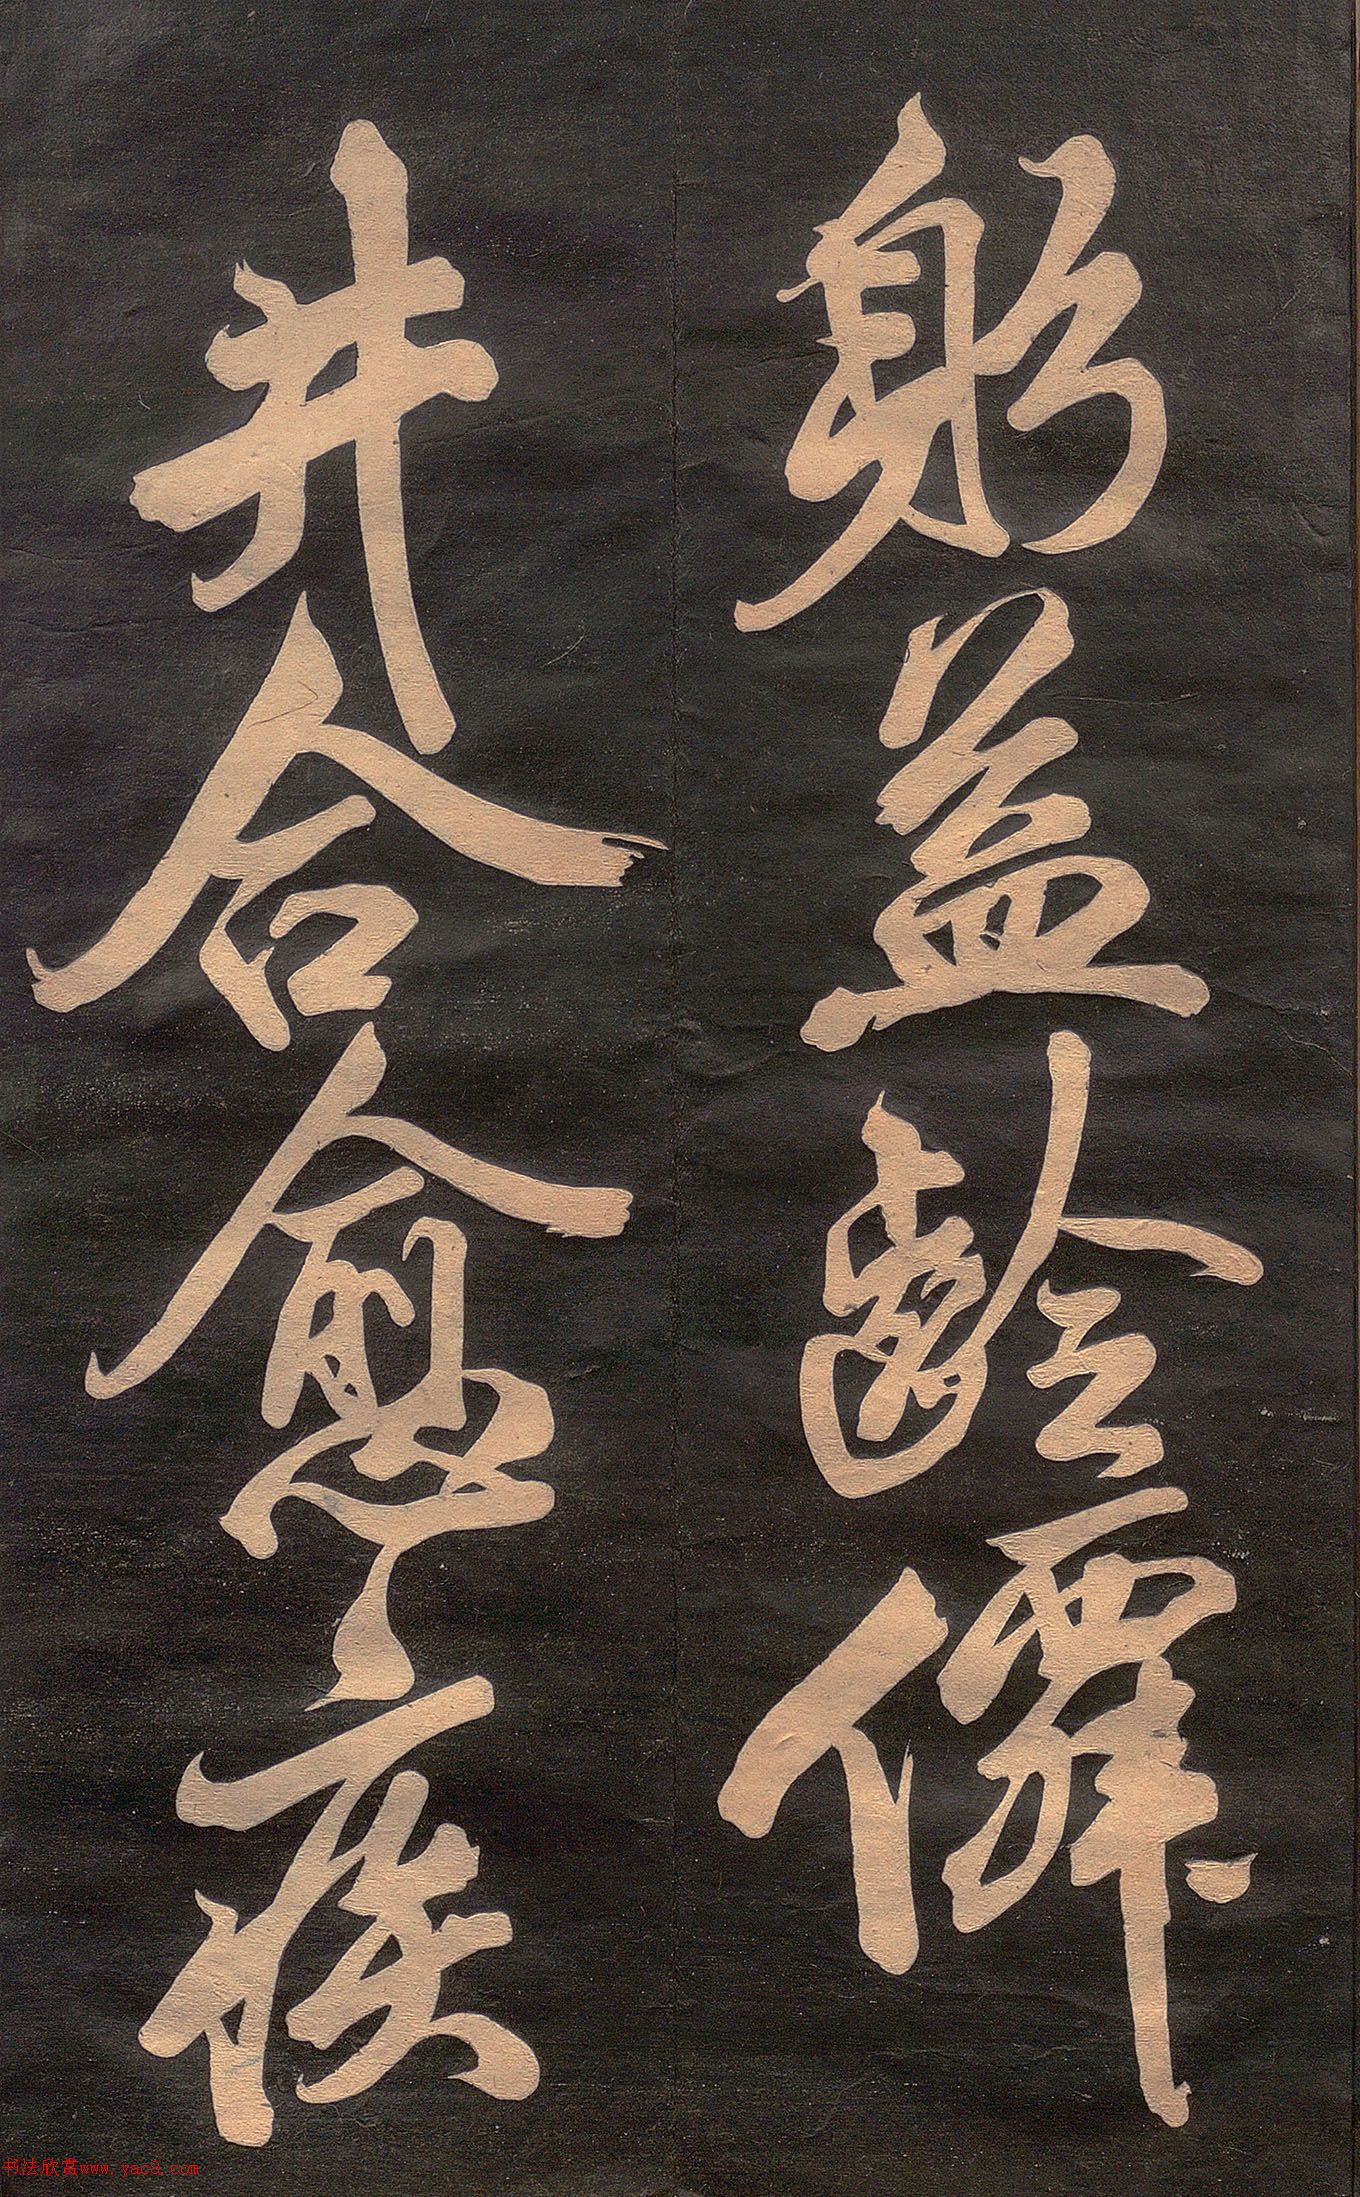 躬益齡僊
井合愈疾
书法欣赏www.yac8.com